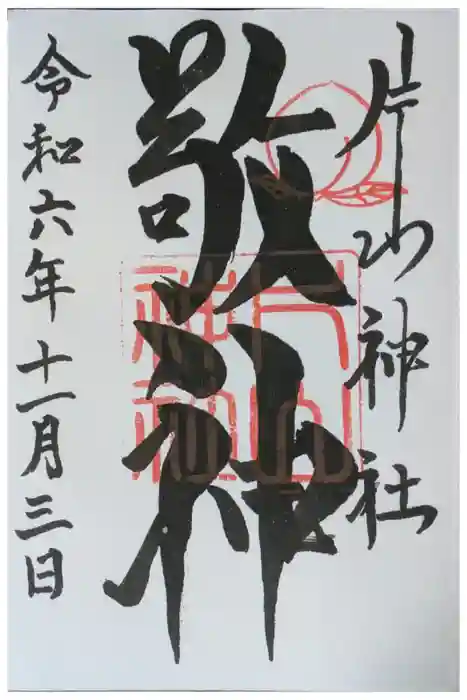 片山神社
敬神
片山神社
令和六年十一月三日